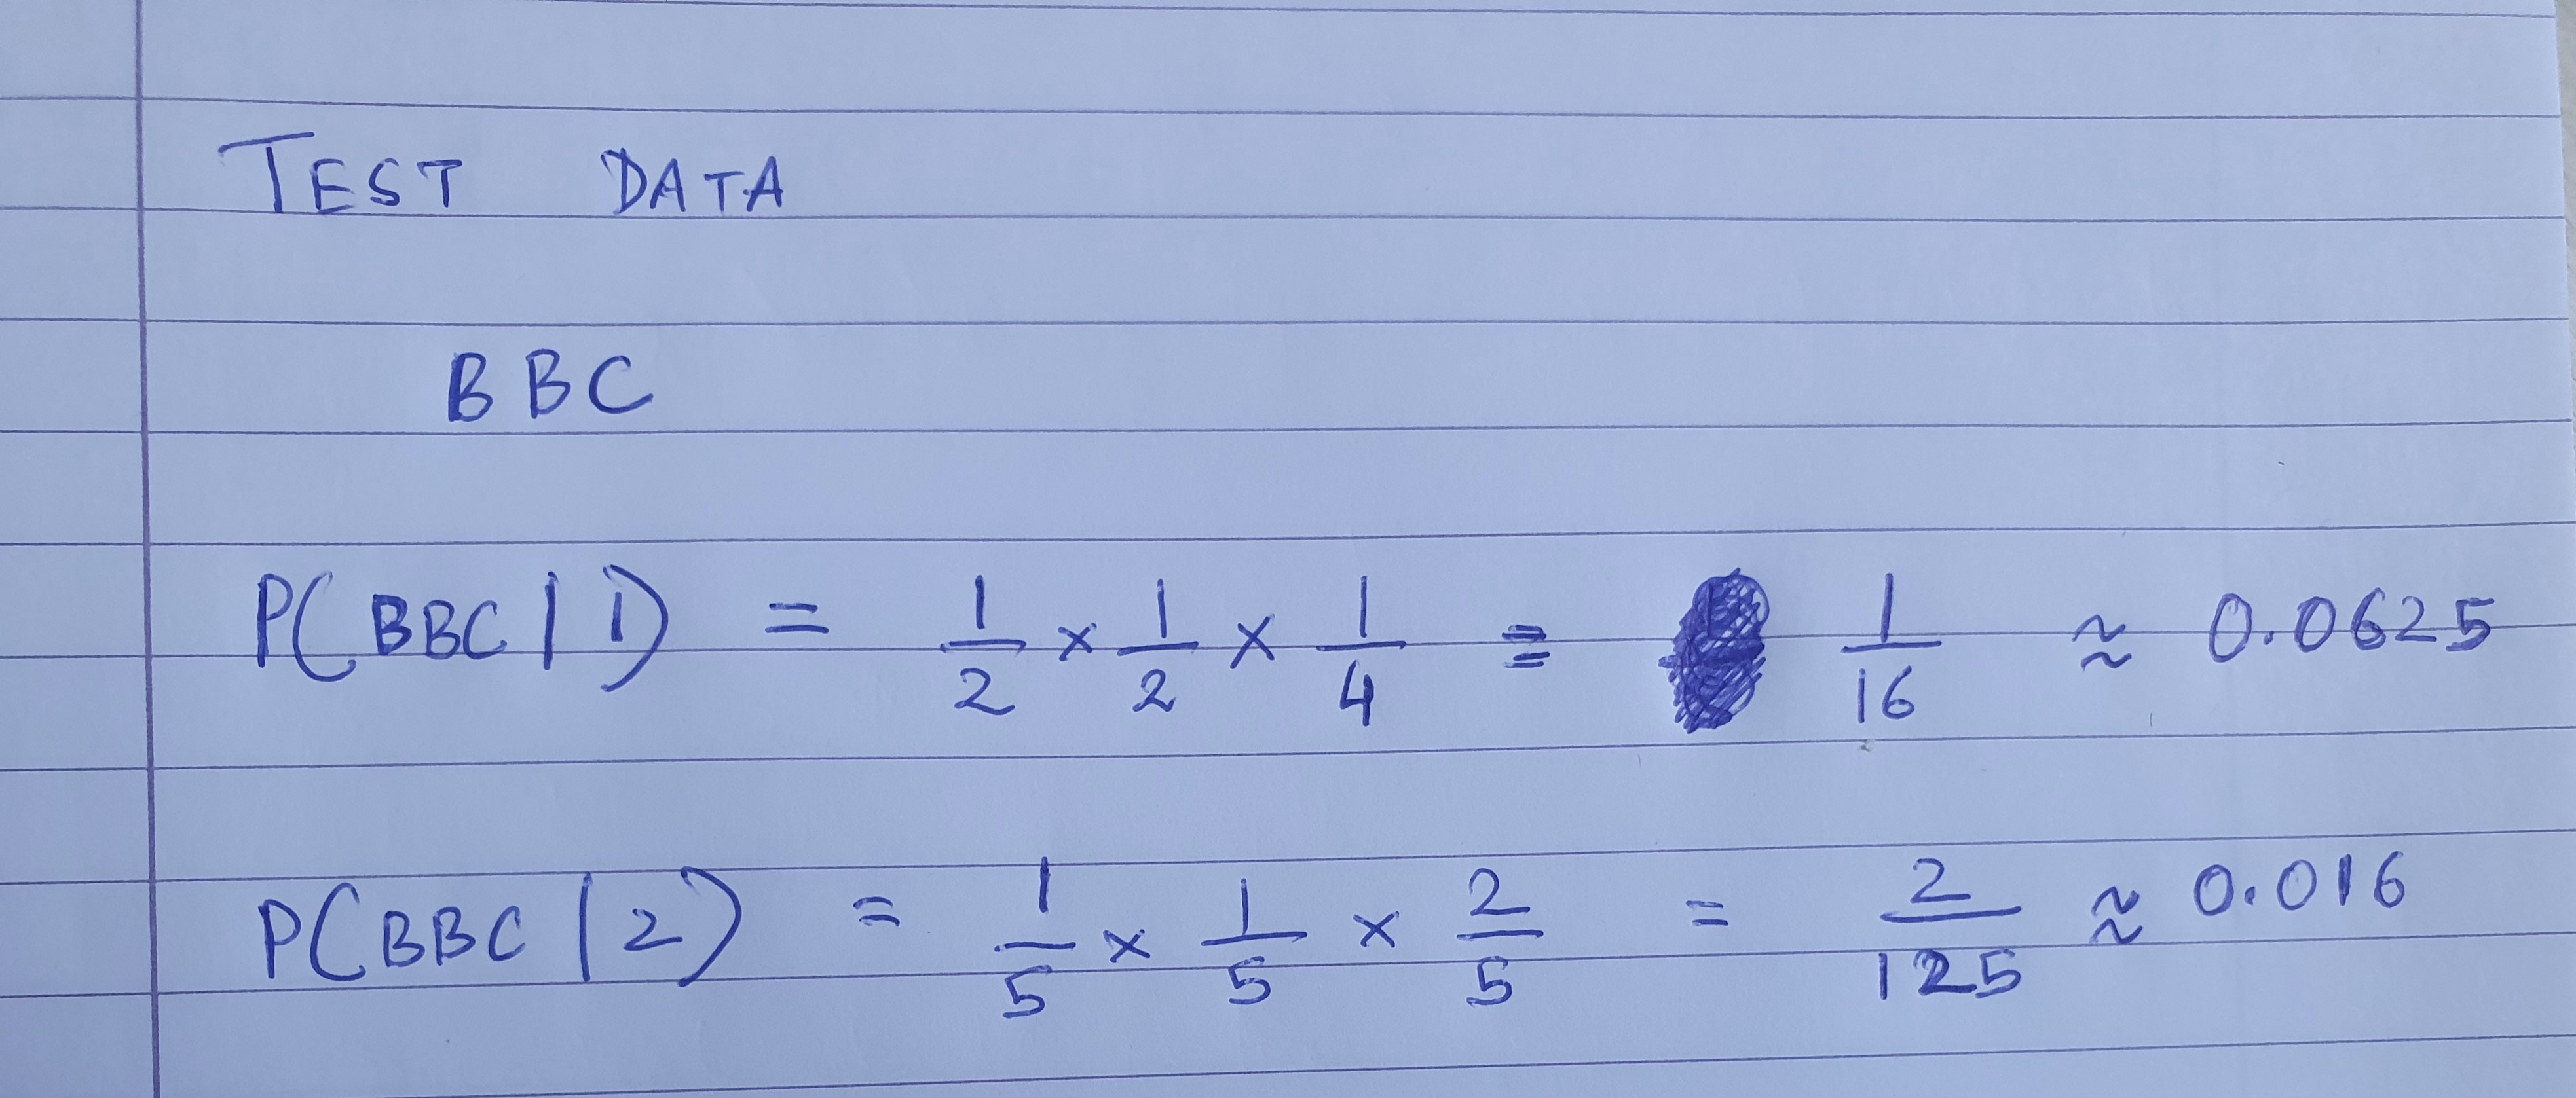 TEST DATA
BBC
P(BBC|1) = 1/2 × 1/2 × 1/4 = 1/16 ≈ 0.0625
P(BBC|2) = 1/5 × 1/5 × 2/5 = 2/125 ≈ 0.016